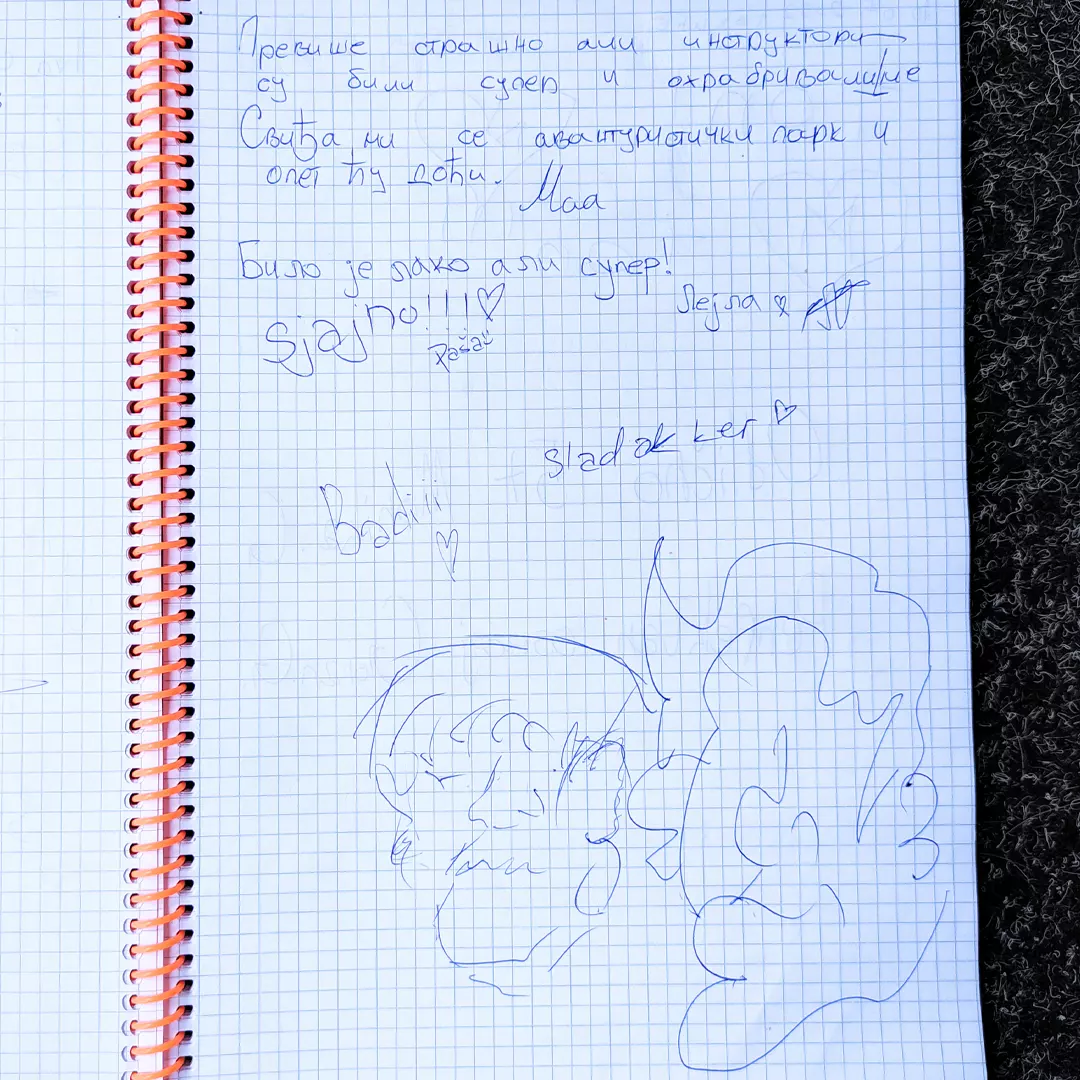 Превише страшно али инструктори
су били супер и охрабривали ме
Свиђа ми се авантуристички парк и
опет ћу доћи.
Маа
Било је лако али супер!
Лејла
Sjajno!!!
sladak ker
Badiii